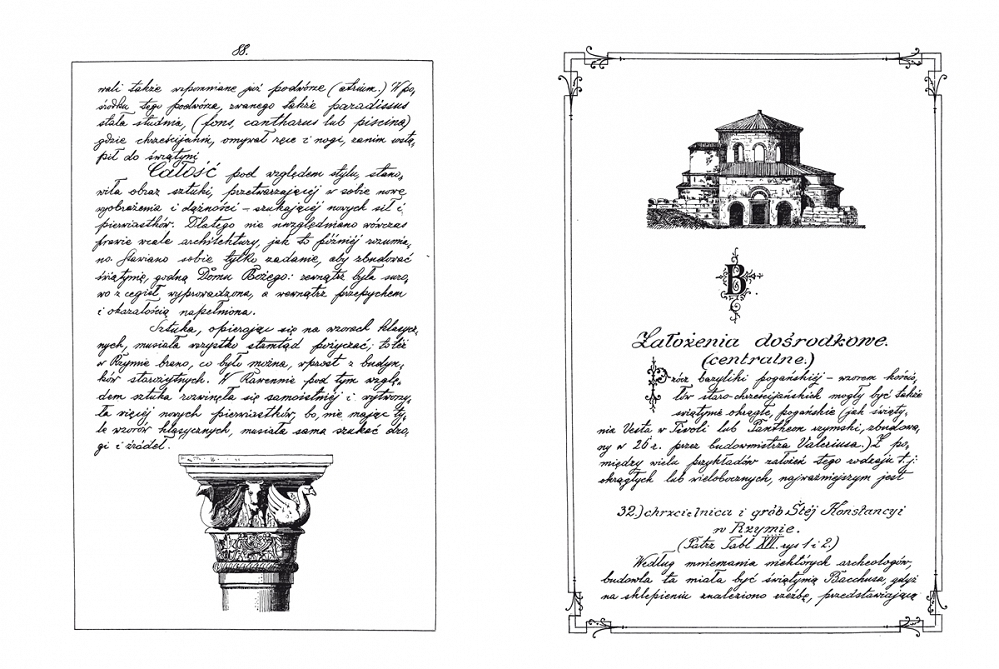 88.
wali także wspomniane już podwóne (atrium.) W po,
środku tego podwóna, zwanego także paradissus
stała studnia, (fons, cantharus lub piscina)
gdzie chrześcijanin, omywał ręce i nogi, zanim wstą,
pił do świątyni.
Całość pod względem stylu, stano,
wiła obraz sztuki, przetwarzającej w sobie nowe
wyobrażenia i dążności – szukającej nowych sił i
pierwiastków. Dlatego nie uwzględniano wówczas
prawie wcale architektury, jak to później rozumia,
no. Stawiano sobie tylko zadanie, aby zbudować
świątynię, godną Domu Bożego: zewnątrz była suro,
wo z cegieł wyprowadzona, a wewnątrz przepychem
i okazałością napełniona.
Sztuka, opierając się na wzorach klasycz,
nych, musiała wszystko stamtąd pożyczać; to też
w Rzymie brano, co było można, wprost z budyn,
ków starożytnych. W Rawennie pod tym wzglę,
dem sztuka rozwinęła się samoistniej i wytworzy,
ła więcej nowych pierwiastków, bo, nie mając ty,
le wzorów klasycznych, musiała sama szukać dro,
gi i źródeł.
B.
Założenia dośrodkowe.
(centralne.)
Prócz bazyliki pogańskiej – wzorem kościo,
łów staro-chrześcijańskich mogły być także
świątynie okrągłe, pogańskie (jak święty,
nia Vesta w Tivoli lub Pantheon rzymski, zbudowa,
ny w 26 r. przez budowniczego Valeriusa.) Z po,
między wielu przykładów założeń tego rodzaju t.j:
okrągłych lub wielobocznych, najważniejszym jest
32.) chrzcielnica i grób Stéj Konstancyi
w Rzymie.
(Patrz Tabl XVI. rys 1 i 2.)
Według mniemania niektórych archeologów,
budowla ta miała być świątynią Bacchusa, gdyż
na sklepieniu znaleziono rzeźbę, przedstawiającą